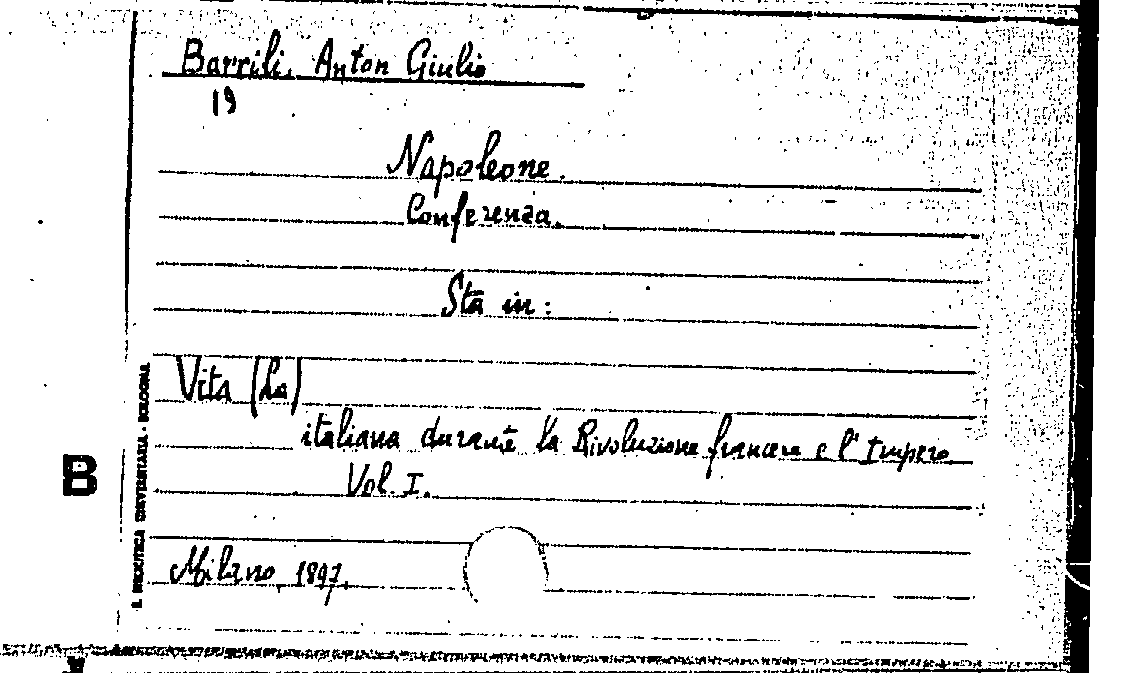 Barrili, Anton Giulio
19
Napoleone.
Conferenza.
Sta in:
Vita (La)
italiana durante la Rivoluzione francese e l'Impero
Vol. I.
Milano, 1897.
B
R. BIBLIOTECA UNIVERSITARIA - BOLOGNA